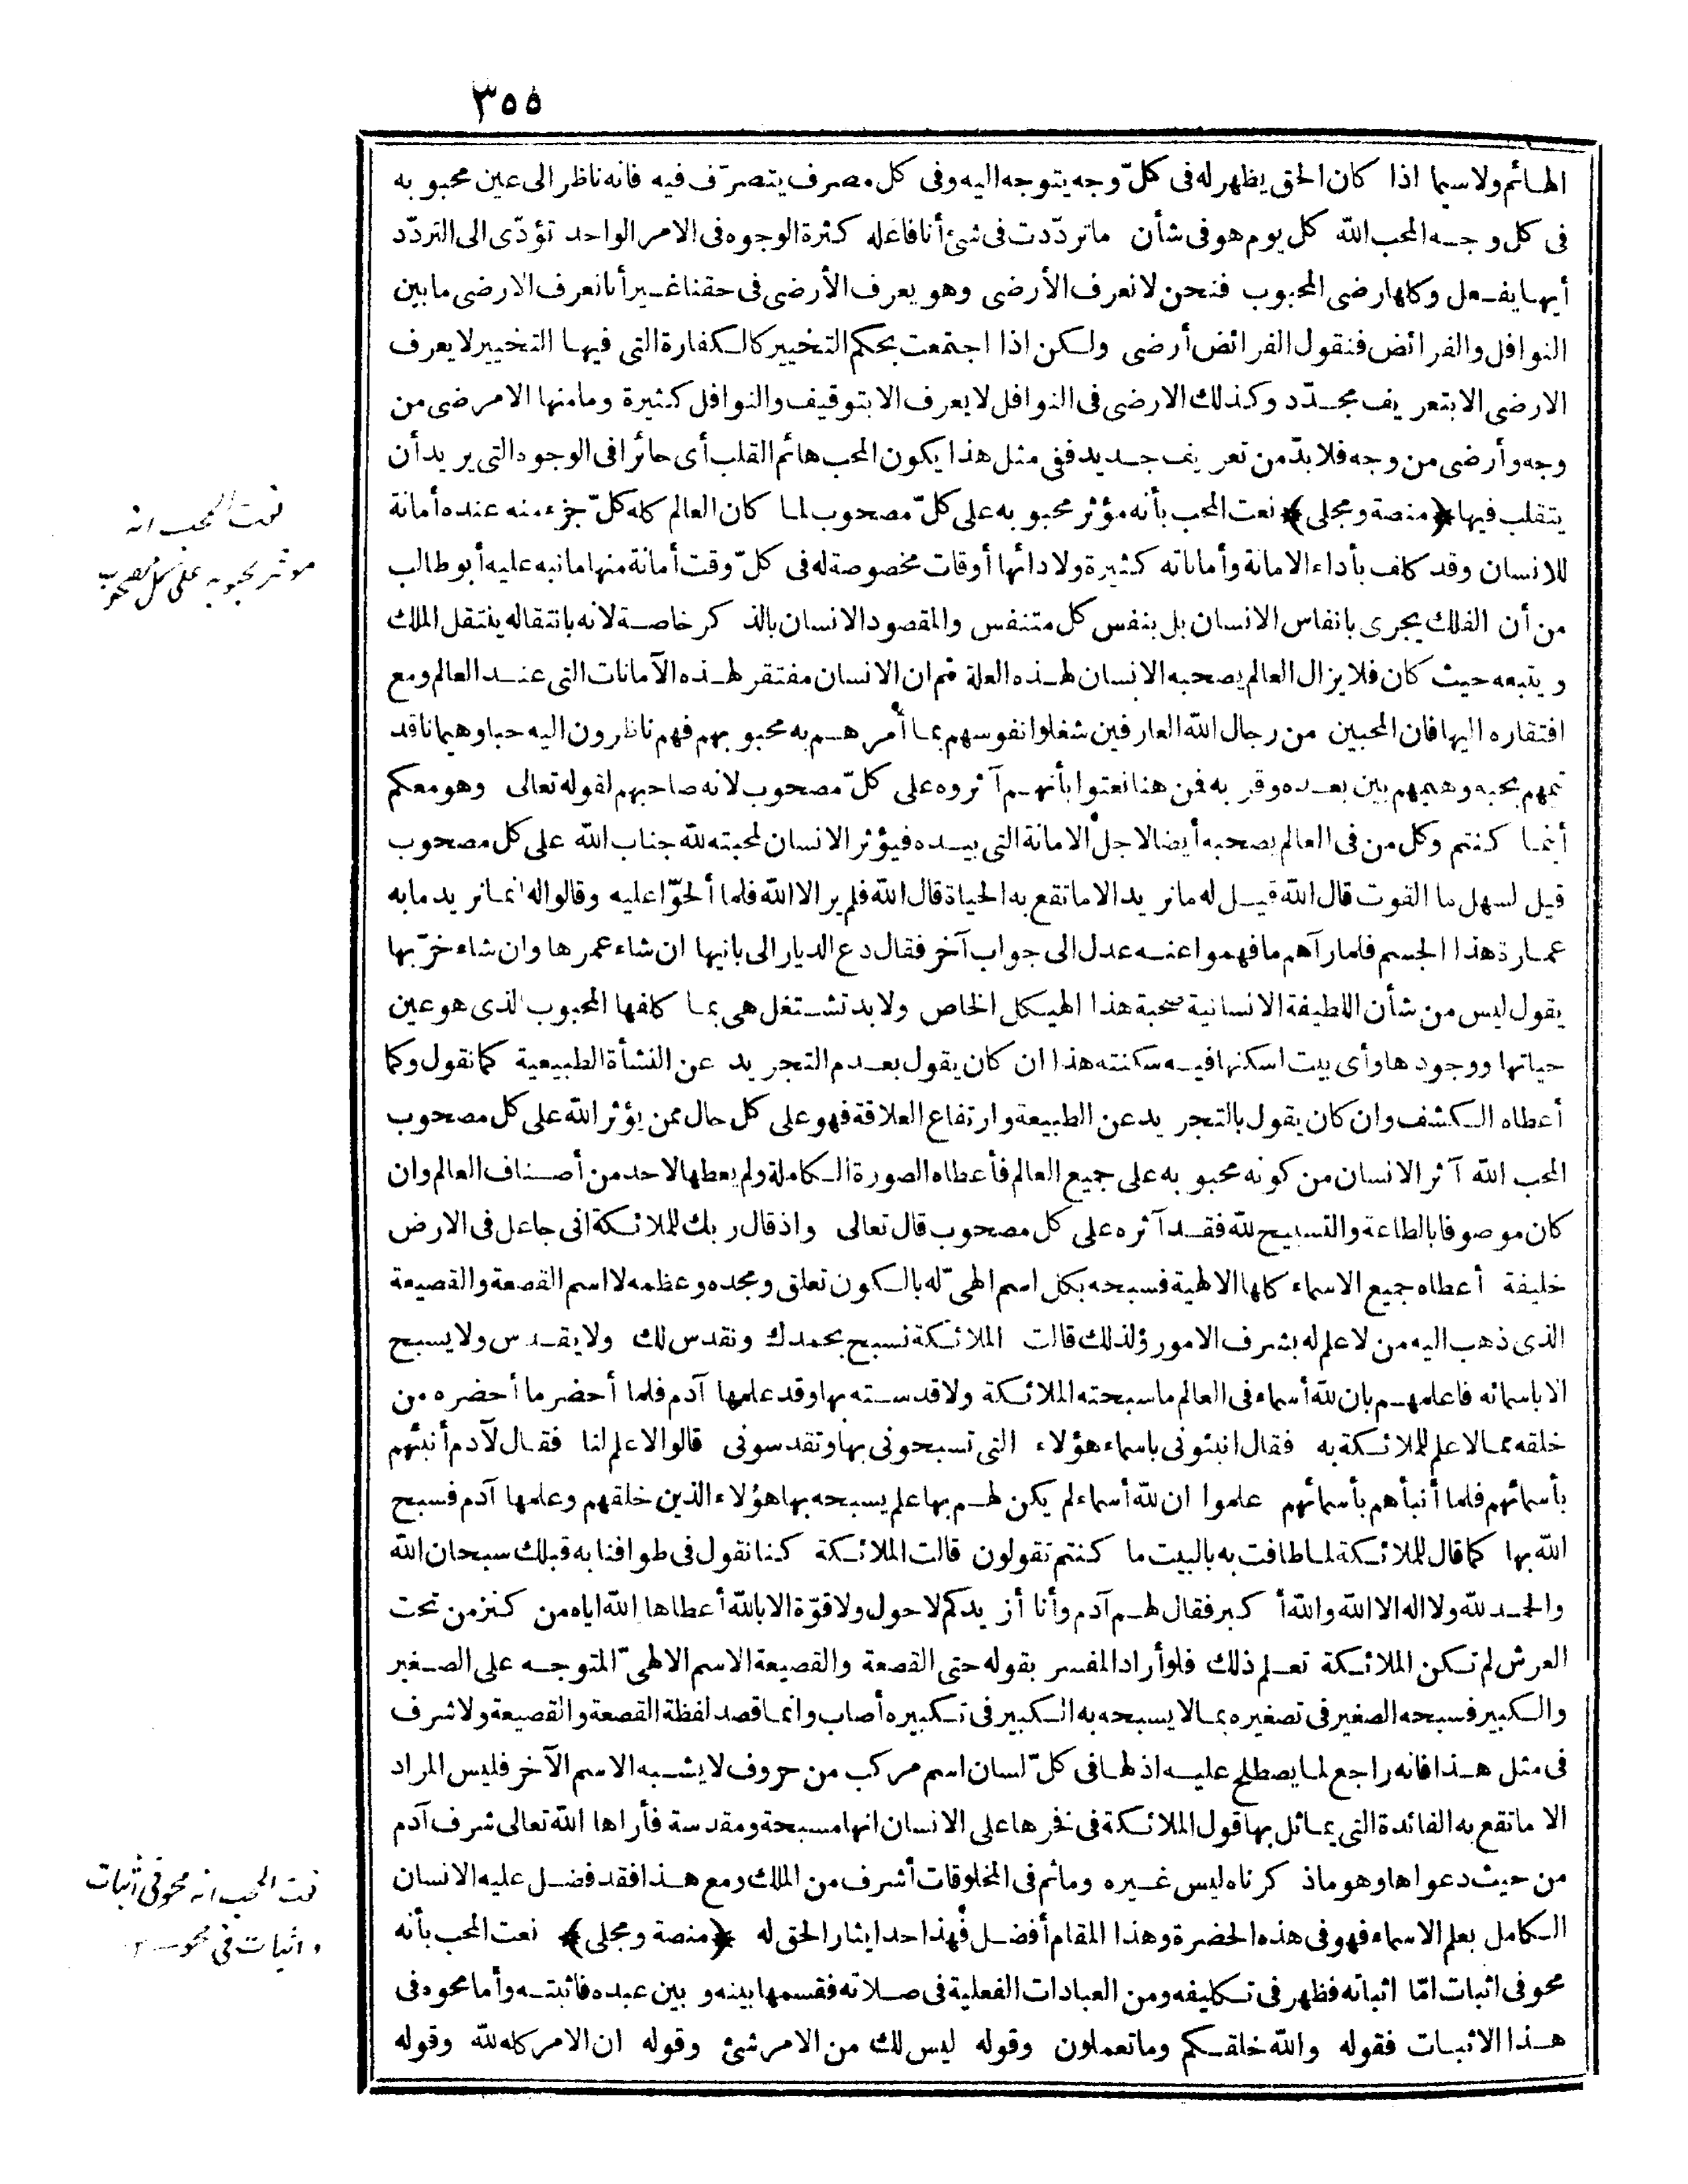 ٣٥٥
الهائم ولا سيما اذا كان الحق يظهر له في كلّ وجه يتوجه اليه وفي كل مصرف يتصرّف فيه فانه ناظر الى عين محبوبه
في كل وجه المحب الله كل يوم هو في شأن ما تردّدت في شئ أنا فاعله كثرة الوجوه في الامر الواحد تؤدّى الى التردّد
أيها يفعل وكلها رضى المحبوب فنحن لا نعرف الأرضى وهو يعرف الأرضى في حقنا غير أنا نعرف الارضى ما بين
النوافل والفرائض فنقول الفرائض أرضى ولكن اذا اجتمعت بحكم التخيير كالكفارة التى فيها التخيير لا يعرف
الارضى الا بتعريف مجدّد وكذلك الارضى في النوافل لا يعرف الا بتوقيف والنوافل كثيرة وما منها الا مرضى من
وجه وأرضى من وجه فلا بدّ من تعريف جديد ففى مثل هذا يكون المحب هائم القلب أى حائرا في الوجوه التى يريد أن
يتقلب فيها ﴿منصة ومجلى﴾ نعت المحب بأنه مؤثر محبوبه على كلّ مصحوب لما كان العالم كله كلّ جزء منه عنده أمانة
للانسان وقد كلف بأداء الامانة وأماناته كثيرة ولادائها أوقات مخصوصة له في كلّ وقت أمانة منها ما نبه عليه أبو طالب
من أن الفلك يجرى بانفاس الانسان بل بنفس كل متنفس والمقصود الانسان بالذكر خاصة لانه بانتقاله ينتقل الملك
ويتبعه حيث كان فلا يزال العالم يصحبه الانسان لهذه العلة ثم ان الانسان مفتقر لهذه الآمانات التى عند العالم ومع
افتقاره اليها فان المحبين من رجال الله العارفين شغلوا نفوسهم بما أمرهم به محبوبهم فهم ناظرون اليه حبا وهيمانا قد
تيمهم بحبه وهيمهم بين بعده وقربه فمن هنا نعتوا بأنهم آثروه على كلّ مصحوب لانه صاحبهم لقوله تعالى وهو معكم
أينما كنتم وكل من في العالم يصحبه أيضا لاجل الامانة التى بيده فيؤثر الانسان لمحبته لله جناب الله على كل مصحوب
قيل لسهل ما القوت قال الله قيل له ما نريد الا ما تقع به الحياة قال الله فلم ير الا الله فلما ألحوّا عليه وقالوا له انما نريد ما به
عمارة هذا الجسم فلما رآهم ما فهموا عنه عدل الى جواب آخر فقال دع الديار الى بانيها ان شاء عمرها وان شاء خرّبها
يقول ليس من شأن اللطيفة الانسانية صحبة هذا الهيكل الخاص ولا بد تشتغل هى بما كلفها المحبوب الذى هو عين
حياتها ووجودها وأى بيت اسكنها فيه سكنته هذا ان كان يقول بعدم التجريد عن النشأة الطبيعية كما نقول وكما
أعطاه الكشف وان كان يقول بالتجريد عن الطبيعة وارتفاع العلاقة فهو على كل حال ممن يؤثر الله على كل مصحوب
المحب الله آثر الانسان من كونه محبوبه على جميع العالم فأعطاه الصورة الكاملة ولم يعطها لاحد من أصناف العالم وان
كان موصوفا بالطاعة والتسبيح لله فقد آثره على كل مصحوب قال تعالى واذ قال ربك للملائكة انى جاعل في الارض
خليفة أعطاه جميع الاسماء كلها الالهية فسبحه بكل اسم الهىّ له بالكون تعلق ومجده وعظمه لا اسم القصعة والقصيعة
الذى ذهب اليه من لا علم له بشرف الامور ولذلك قالت الملائكة نسبح بحمدك ونقدس لك ولا يقدس ولا يسبح
الا باسمائه فاعلمهم بان لله أسماء في العالم ما سبحته الملائكة ولا قدسته بها وقد علمها آدم فلما أحضر ما أحضره من
خلقه مما لا علم للملائكة به فقال انبئونى باسماء هؤلاء التى تسبحونى بها وتقدسونى قالوا لا علم لنا فقال لآدم أنبئهم
بأسمائهم فلما أنبأهم بأسمائهم علموا ان لله أسماء لم يكن لهم بها علم يسبحه بها هؤلاء الذين خلقهم وعلمها آدم فسبح
الله بها كما قال للملائكة لما طافت به بالبيت ما كنتم تقولون قالت الملائكة كنا نقول في طوافنا به قبلك سبحان الله
والحمد لله ولا اله الا الله والله أكبر فقال لهم آدم وأنا أزيدكم لا حول ولا قوّة الا بالله أعطاها الله اياه من كنز من تحت
العرش لم تكن الملائكة تعلم ذلك فلو أراد المفسر بقوله حتى القصعة والقصيعة الاسم الالهىّ المتوجه على الصغير
والكبير فسبحه الصغير في تصغيره بما لا يسبحه به الكبير في تكبيره أصاب وانما قصد لفظة القصعة والقصيعة ولا شرف
في مثل هذا فانه راجع لما يصطلح عليه اذ لها في كلّ لسان اسم مركب من حروف لا يشبه الاسم الآخر فليس المراد
الا ما تقع به الفائدة التى يماثل بها قول الملائكة في فخرها على الانسان انها مسبحة ومقدسة فأراها الله تعالى شرف آدم
من حيث دعواها وهو ما ذكرناه ليس غيره وما ثم في المخلوقات أشرف من الملك ومع هذا فقد فضل عليه الانسان
الكامل بعلم الاسماء فهو في هذه الحضرة وهذا المقام أفضل فهذا حد ايثار الحق له ﴿منصة ومجلى﴾ نعت المحب بأنه
محو في اثبات امّا اثباته فظهر في تكليفه ومن العبادات الفعلية في صلاته فقسمها بينه وبين عبده فاثبته وأما محوه في
هذا الاثبات فقوله والله خلقكم وما تعملون وقوله ليس لك من الامر شئ وقوله ان الامر كله لله وقوله
نعت المحب انه
موثر محبوبه على كل مصحوب
نعت المحب انه محو في اثبات
واثبات في محو